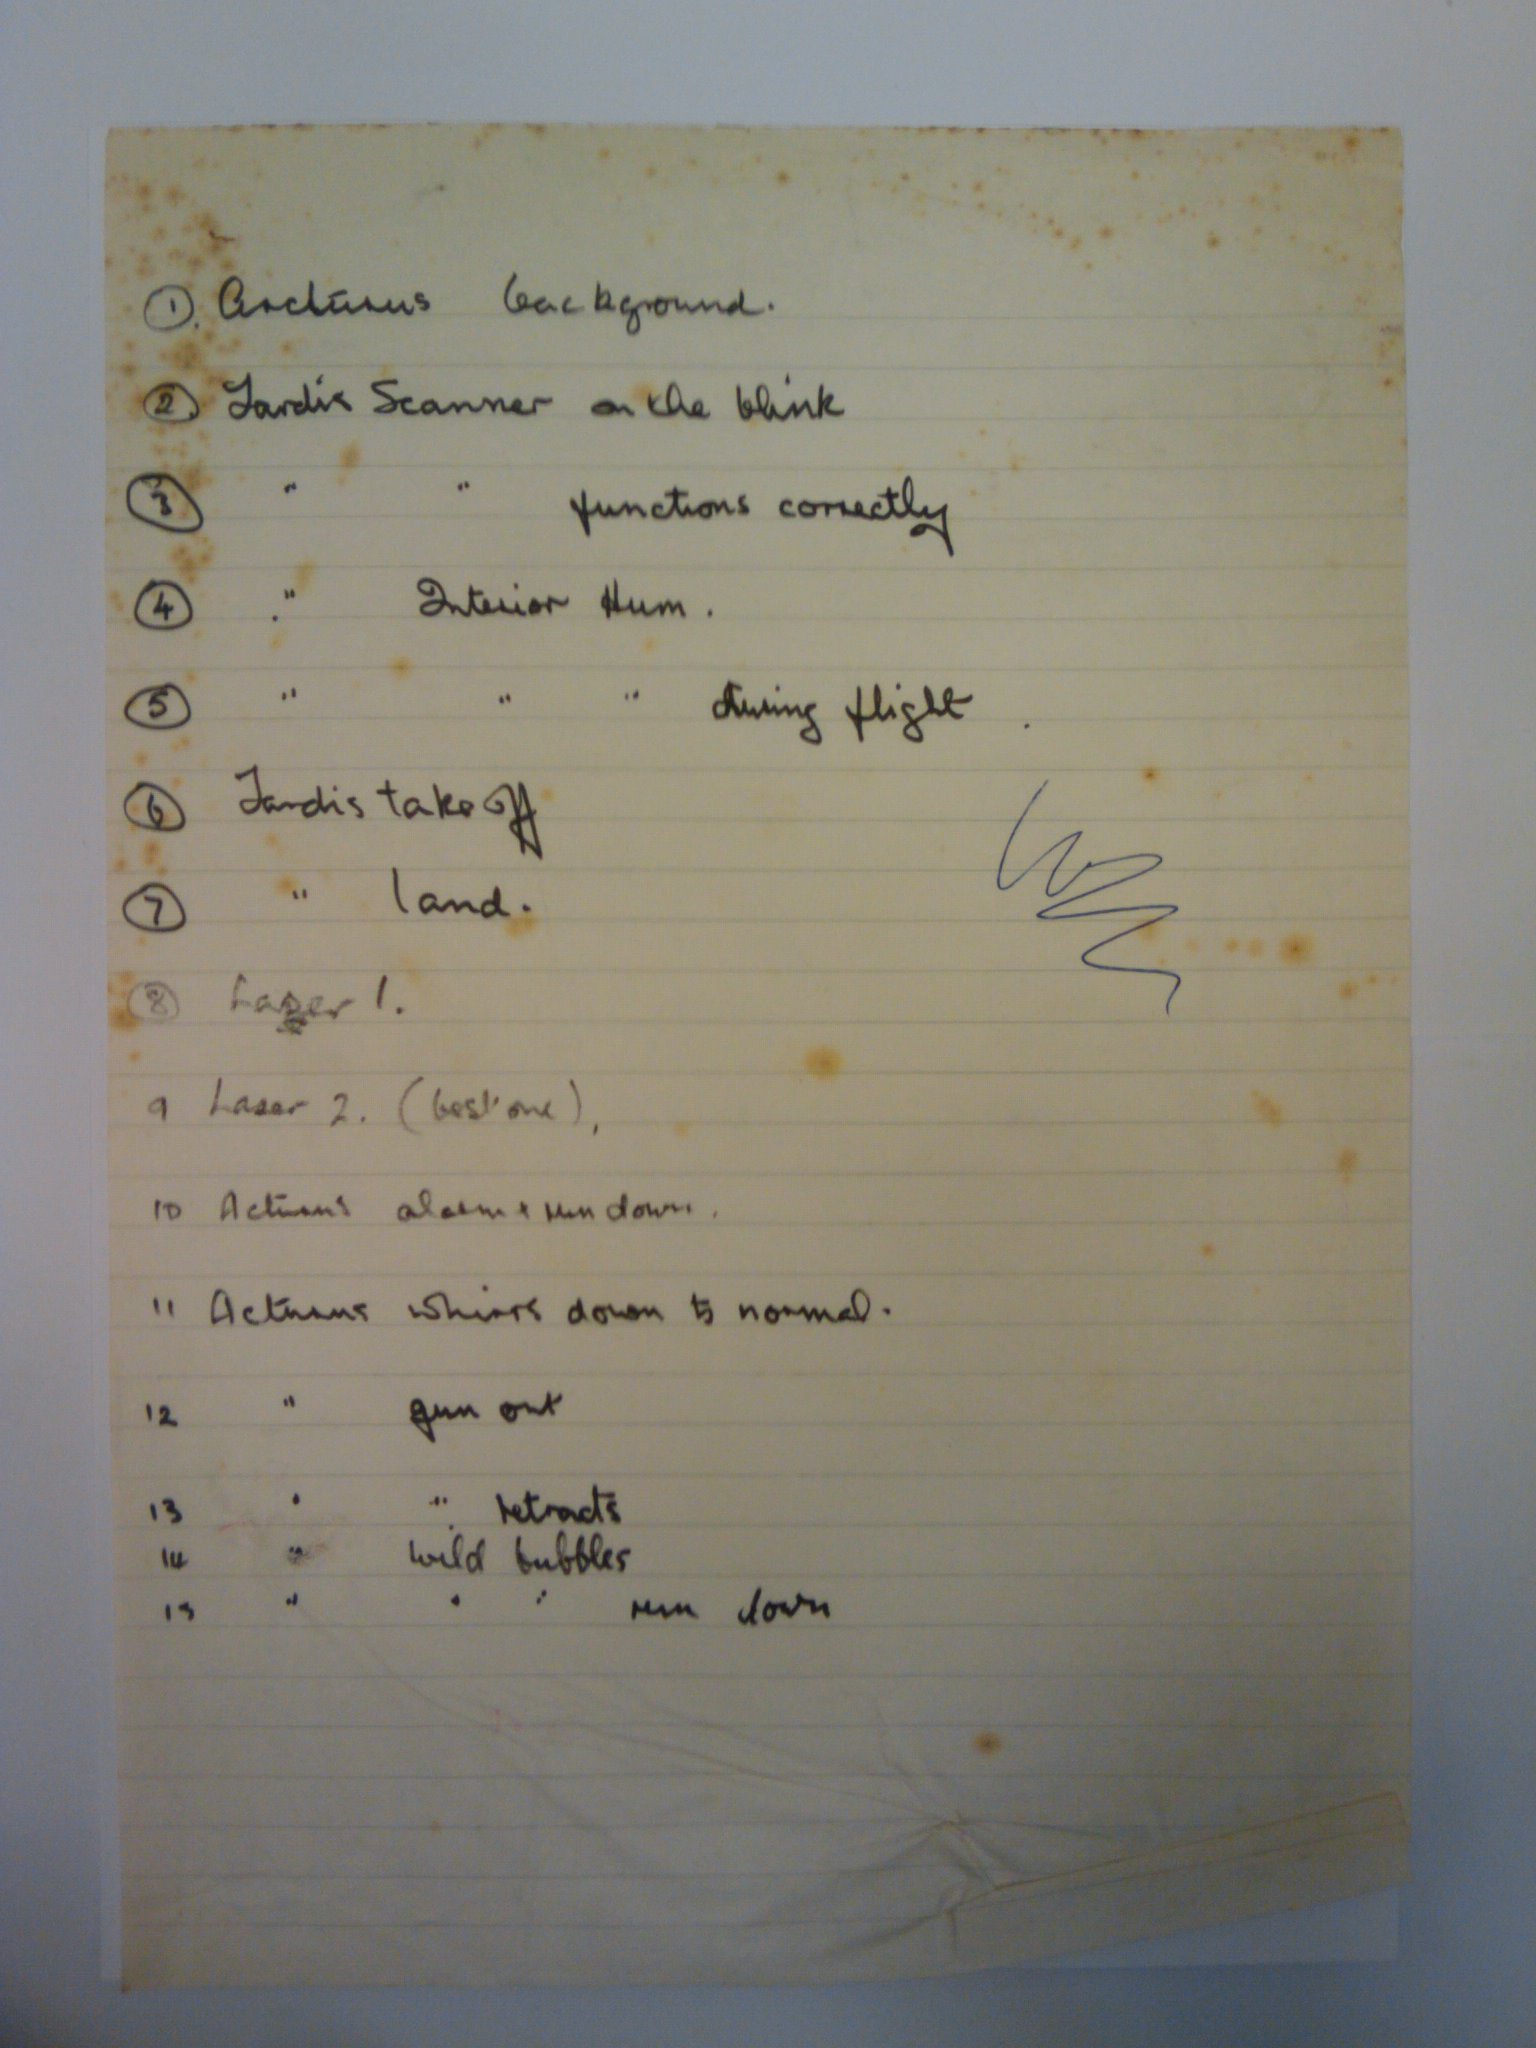 1. Arcturus background.
2 Tardis Scanner on the blink
3 " " functions correctly
4 " Interior Hum.
5 " " " during flight.
6 Tardis take off
7 " land.
8 Laser 1.
9 Laser 2. (best one).
10 Acturus alarm & run down.
11 Acturus whirrs down to normal.
12 " gun out
13 " " retracts
14 " wild bubbles
15 " " " run down